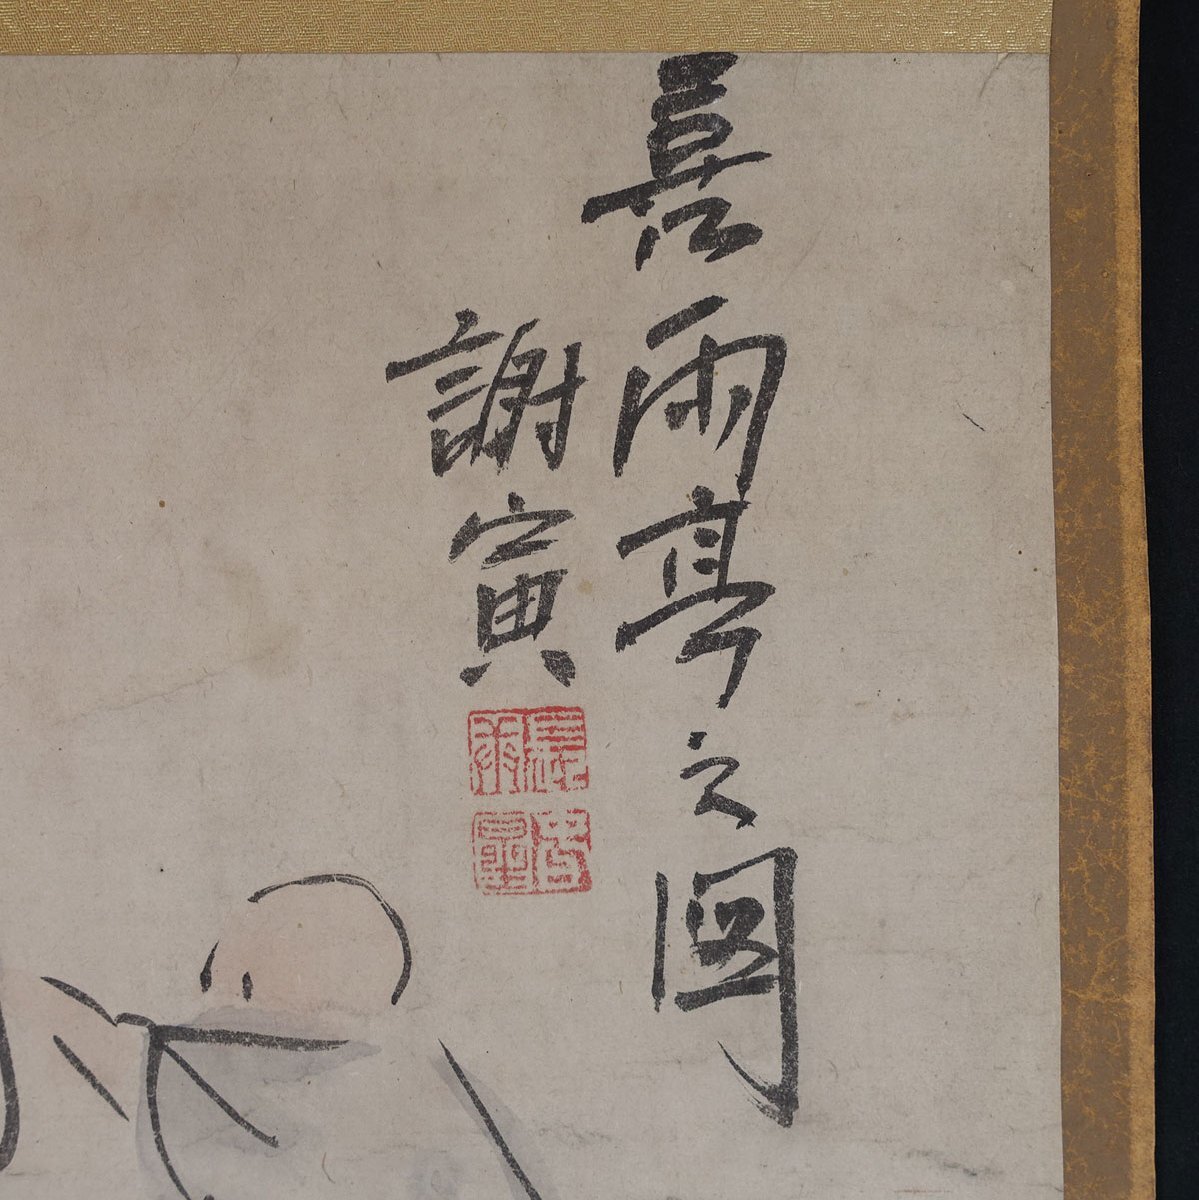 喜雨亭之圖
謝寅